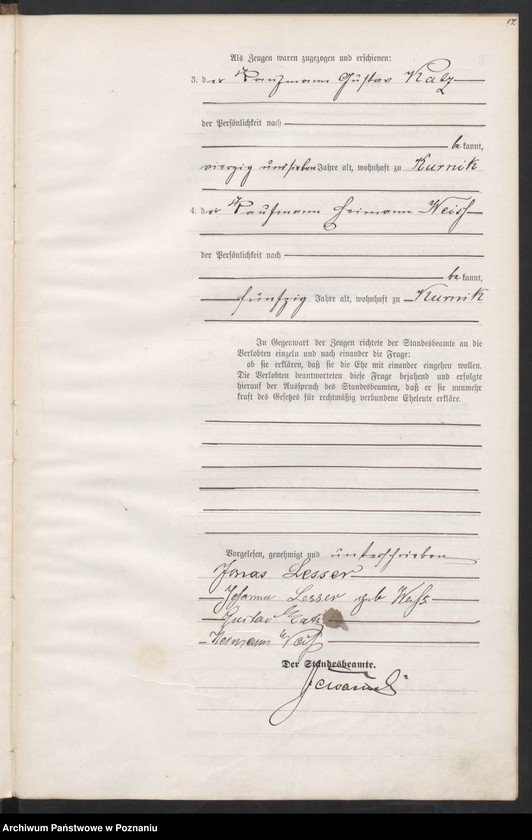 17.
Als Zeugen waren zugezogen und erschienen:
3. der Kaufmann Gustav Katz
der Persönlichkeit nach
be kannt,
vierzig und sieben Jahre alt, wohnhaft zu Kurnik
4. der Kaufmann Heimann Weiß
der Persönlichkeit nach
be kannt,
fünfzig Jahre alt, wohnhaft zu Kurnik
In Gegenwart der Zeugen richtete der Standesbeamte an die
Verlobten einzeln und nach einander die Frage:
ob sie erklären, daß sie die Ehe mit einander eingehen wollen.
Die Verlobten beantworteten diese Frage bejahend und erfolgte
hierauf der Ausspruch des Standesbeamten, daß er sie nunmehr
kraft des Gesetzes für rechtmäßig verbundene Eheleute erkläre.
Vorgelesen, genehmigt und unterschrieben
Jonas Lesser
Johanna Lesser geb Weiß
Gustav Katz
Heimann Weiß
Der Standesbeamte.
Archiwum Państwowe w Poznaniu